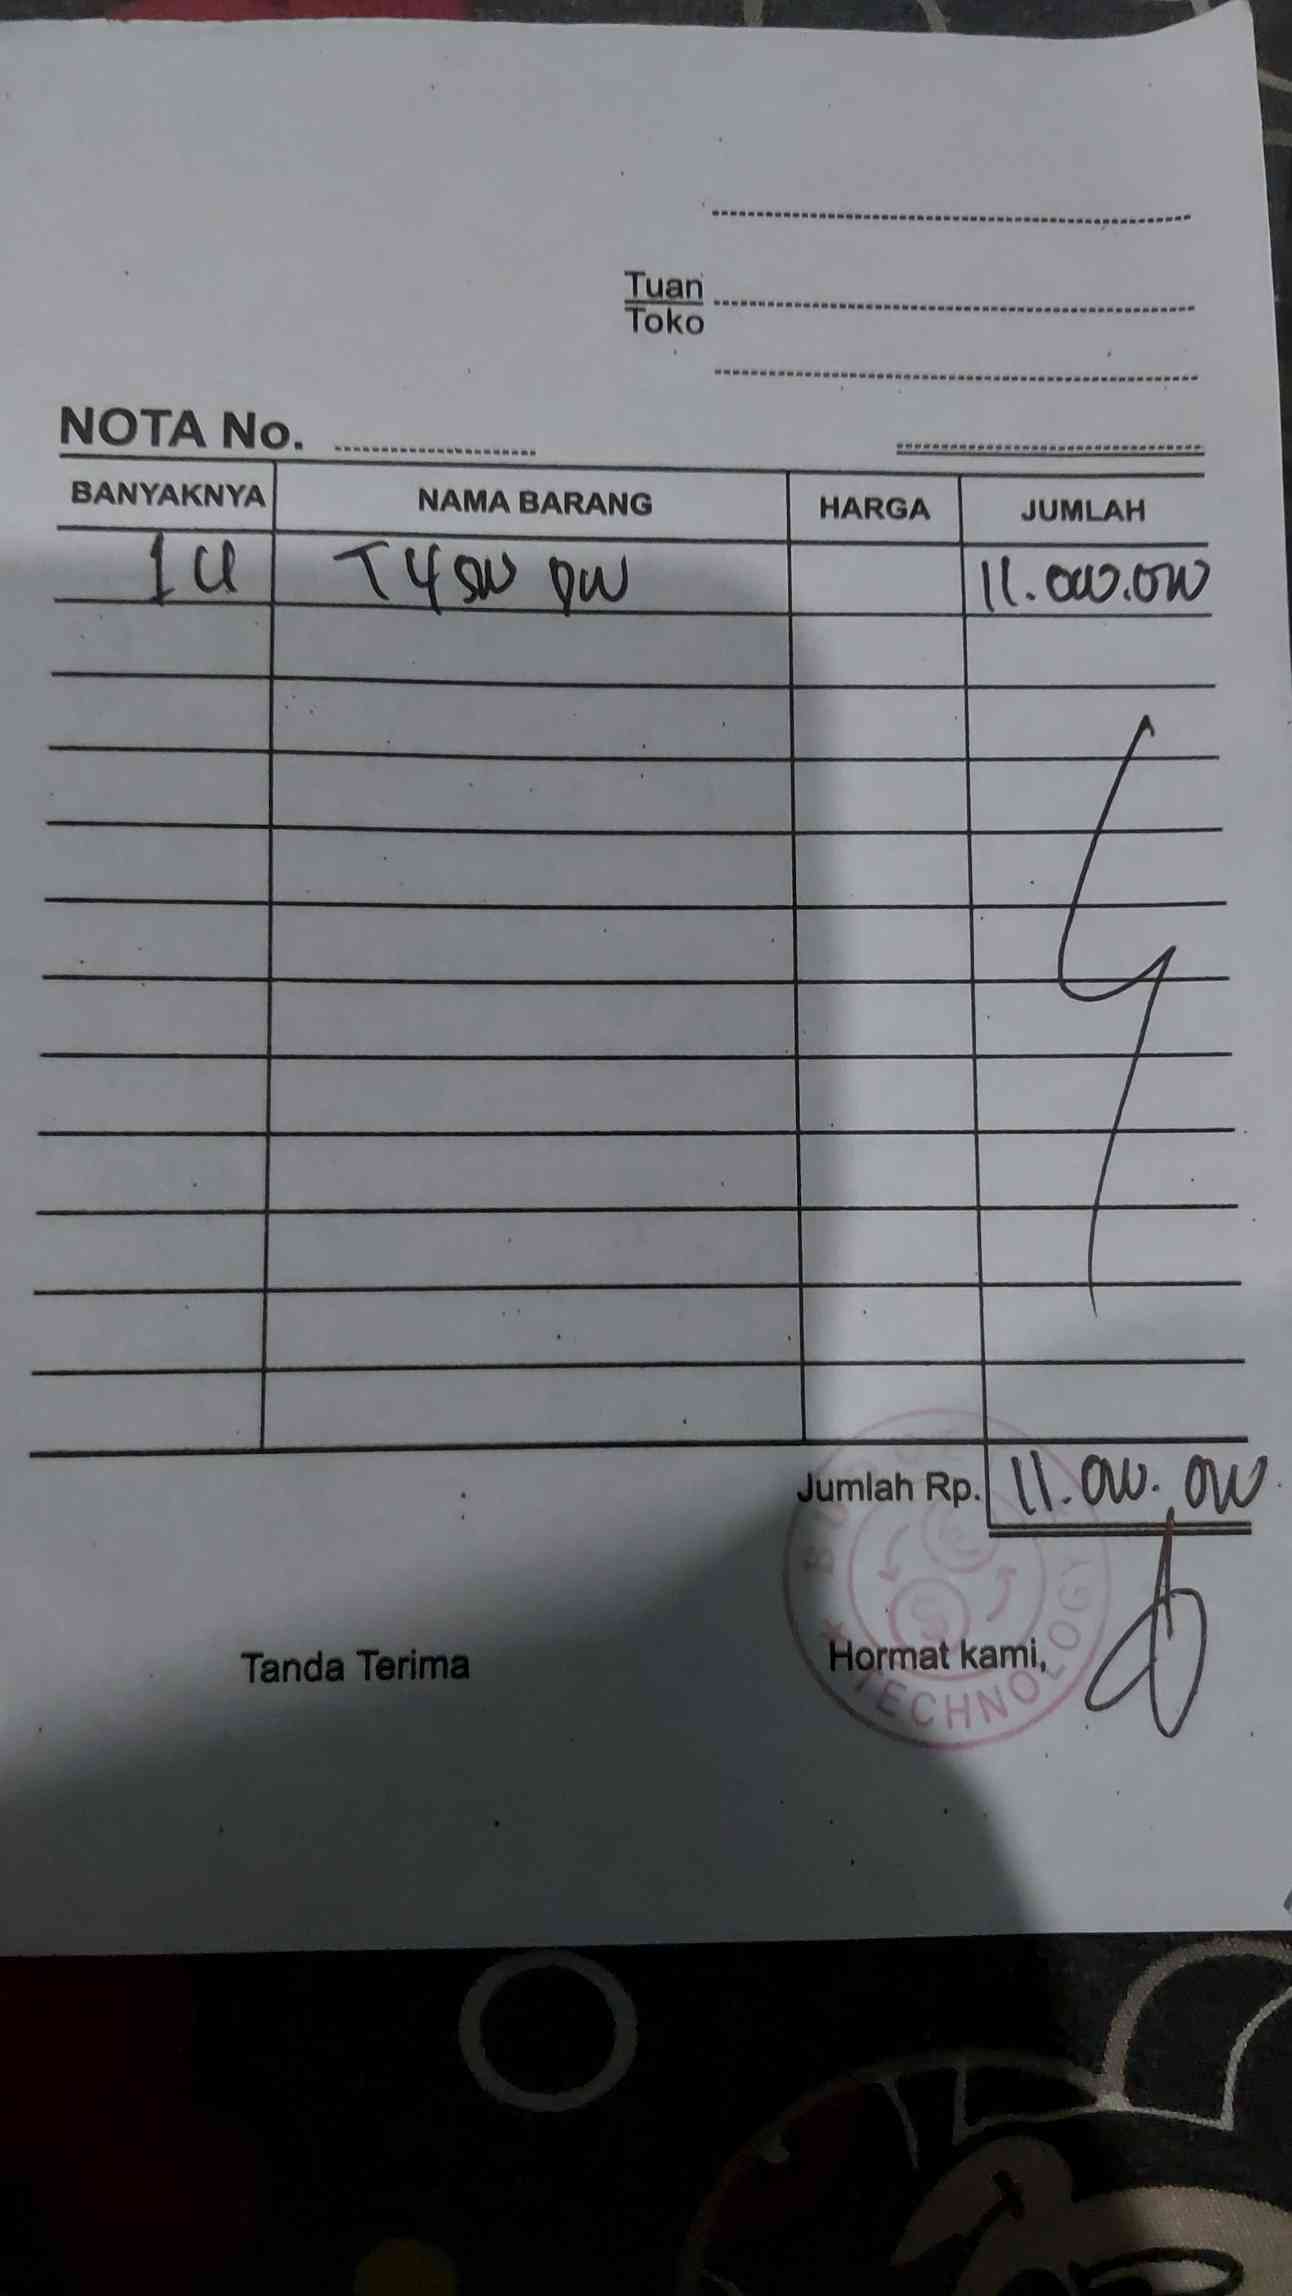 Tuan
Toko
NOTA No.
BANYAKNYA NAMA BARANG HARGA JUMLAH
1 11.000.000
Jumlah Rp. 11.000.000
Tanda Terima Hormat kami,
TECHNOLOGY